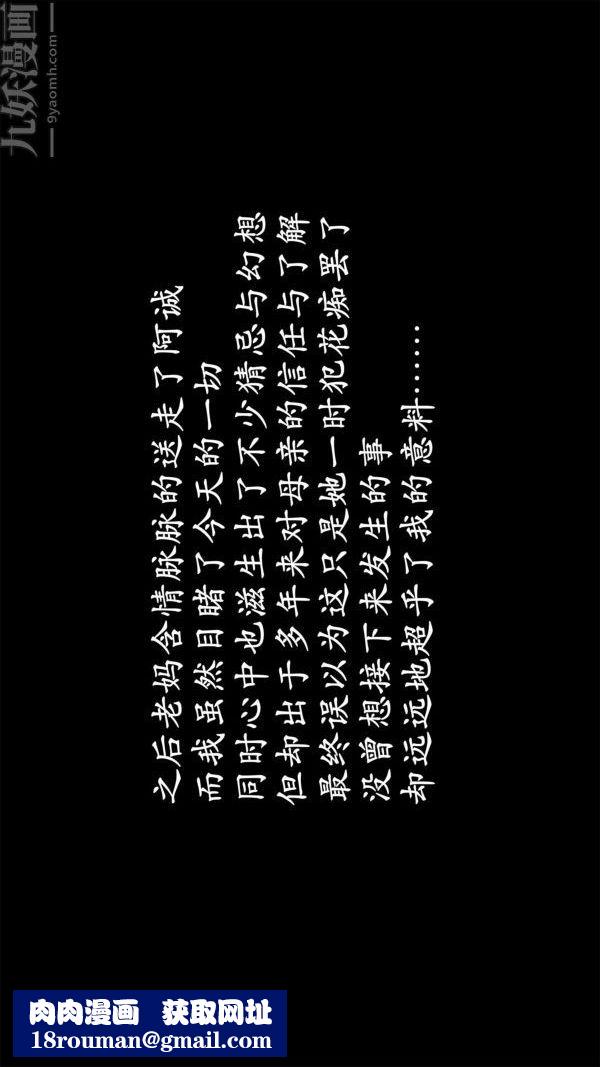 九妖漫画
9yaomh.com
之后老妈含情脉脉的送走了阿诚
而我虽然目睹了今天的一切
同时心中也滋生出了不少猜忌与幻想
但却出于多年来对母亲的信任与了解
最终误以为这只是她一时犯花痴罢了
没曾想接下来发生的事
却远远地超乎了我的意料……
肉肉漫画 获取网址
18rouman@gmail.com